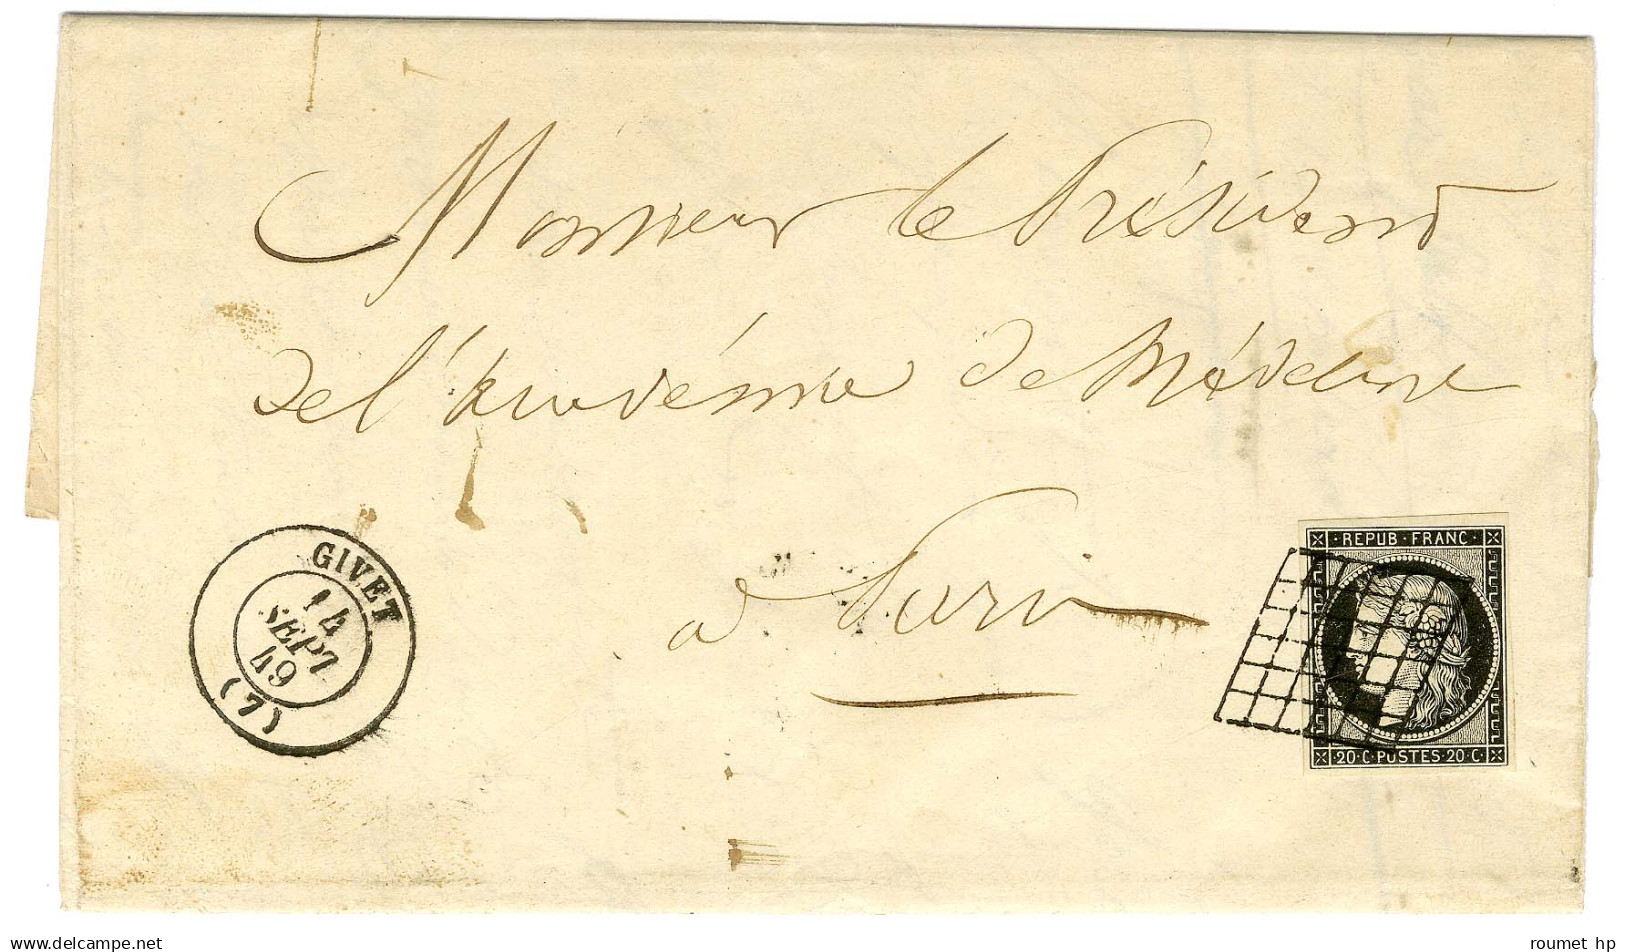 Monsieur le Président
de l'Académie de Médecine
à Paris
GIVET
14
SEPT
49
(7)
REPUB FRANC
20 C POSTES 20 C
www.delcampe.net
roumet hp